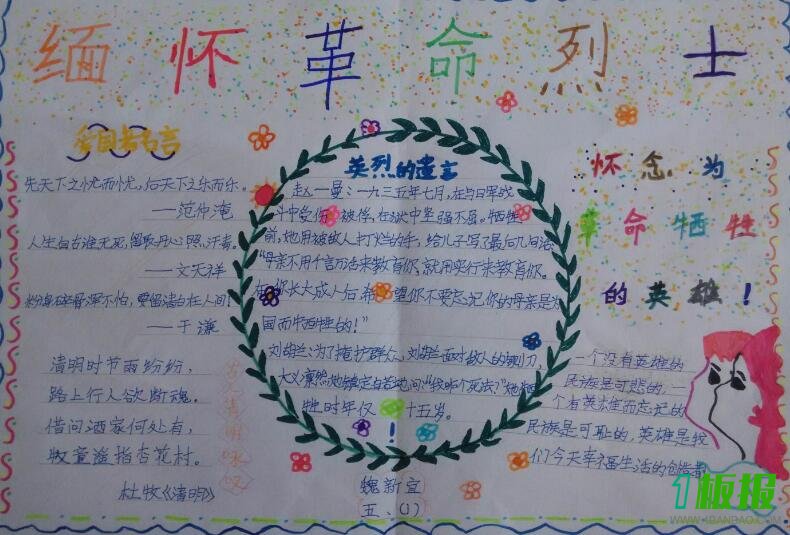 缅怀革命烈士
爱国者名言
先天下之忧而忧，后天下之乐而乐。
——范仲淹
人生自古谁无死，留取丹心照汗青。
——文天祥
粉骨碎身浑不怕，要留清白在人间！
——于谦
清明时节雨纷纷，
路上行人欲断魂。
借问酒家何处有，
牧童遥指杏花村。
杜牧《清明》
英烈的遗言
赵一曼：一九三五年七月，在与日军战
斗中受伤被俘，在狱中坚强不屈。牺牲
前，她用被敌人打烂的手，给儿子写了最后几句话：
"母亲不用千言万语来教育你，就用实行来教育你。
在你长大成人后，希望你不要忘记你的母亲是为
国而牺牲的！"
刘胡兰：为了掩护群众，刘胡兰面对敌人的铡刀，
大义凛然，她镇定自若地问："我咋个死法？"她牺
牲时年仅十五岁。
！
魏新宜
五、(1)
怀念为
革命牺牲
的英雄！
一个没有英雄的
民族是可悲的，一
个有英雄而忘记的
民族是可耻的，英雄是我
们今天幸福生活的创造者
1板报
WWW.1BANBAO.COM